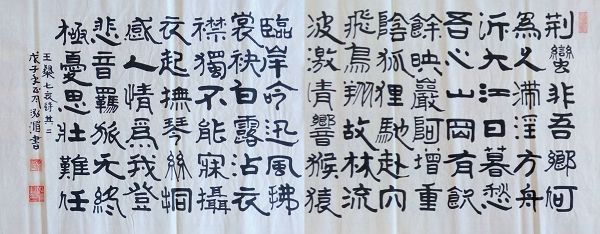 荊蠻非吾鄉何
為久滯淫方舟
泝大江日暮愁
吾心山岡有
餘映巖阿增重
陰狐狸馳赴穴
飛鳥翔故林流
波激清響猴猿
臨岸吟迅風拂
裳袂白露沾衣
襟獨不能寐攝
衣起撫琴絲桐
感人情爲我登
悲音羈旅无終
極憂思壯難任
王粲七哀詩其二
戊子年正月書